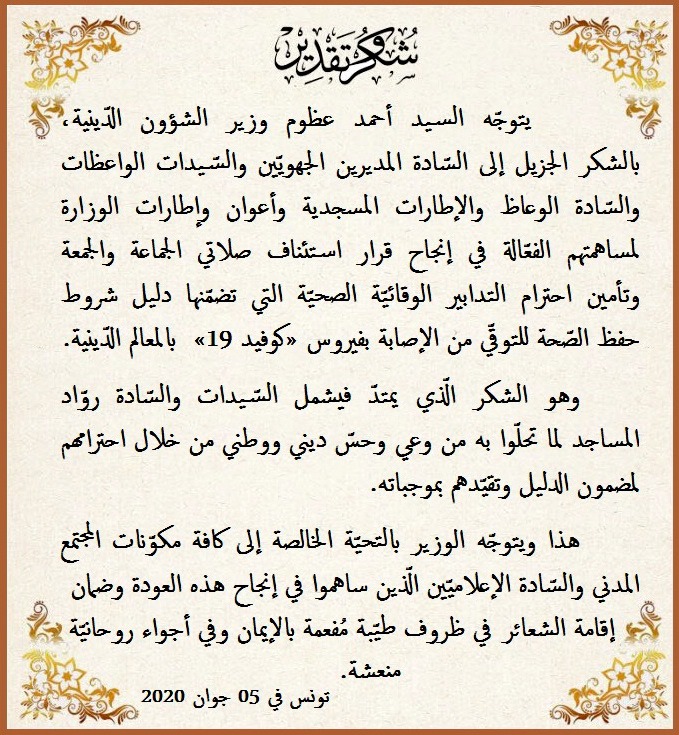 شكر وتقدير
يتوجّه السيد أحمد عظوم وزير الشؤون الدّينية،
بالشكر الجزيل إلى السّادة المديرين الجهويّين والسّيدات الواعظات
والسّادة الوعاظ والإطارات المسجدية وأعوان وإطارات الوزارة
لمساهمتهم الفعّالة في إنجاح قرار استئناف صلاتي الجماعة والجمعة
وتأمين احترام التدابير الوقائيّة الصحيّة التي تضمّنها دليل شروط
حفظ الصّحة للتوقّي من الإصابة بفيروس «كوفيد 19» بالمعالم الدّينية.
وهو الشكر الّذي يمتدّ فيشمل السّيدات والسّادة روّاد
المساجد لما تحلّوا به من وعي وحسّ ديني ووطني من خلال احترامهم
لمضمون الدليل وتقيّدهم بموجباته.
هذا ويتوجّه الوزير بالتحيّة الخالصة إلى كافة مكوّنات المجتمع
المدني والسّادة الإعلاميّين الّذين ساهموا في إنجاح هذه العودة وضمان
إقامة الشعائر في ظروف طيّبة مُفعمة بالإيمان وفي أجواء روحانيّة
منعشة.
تونس في 05 جوان 2020